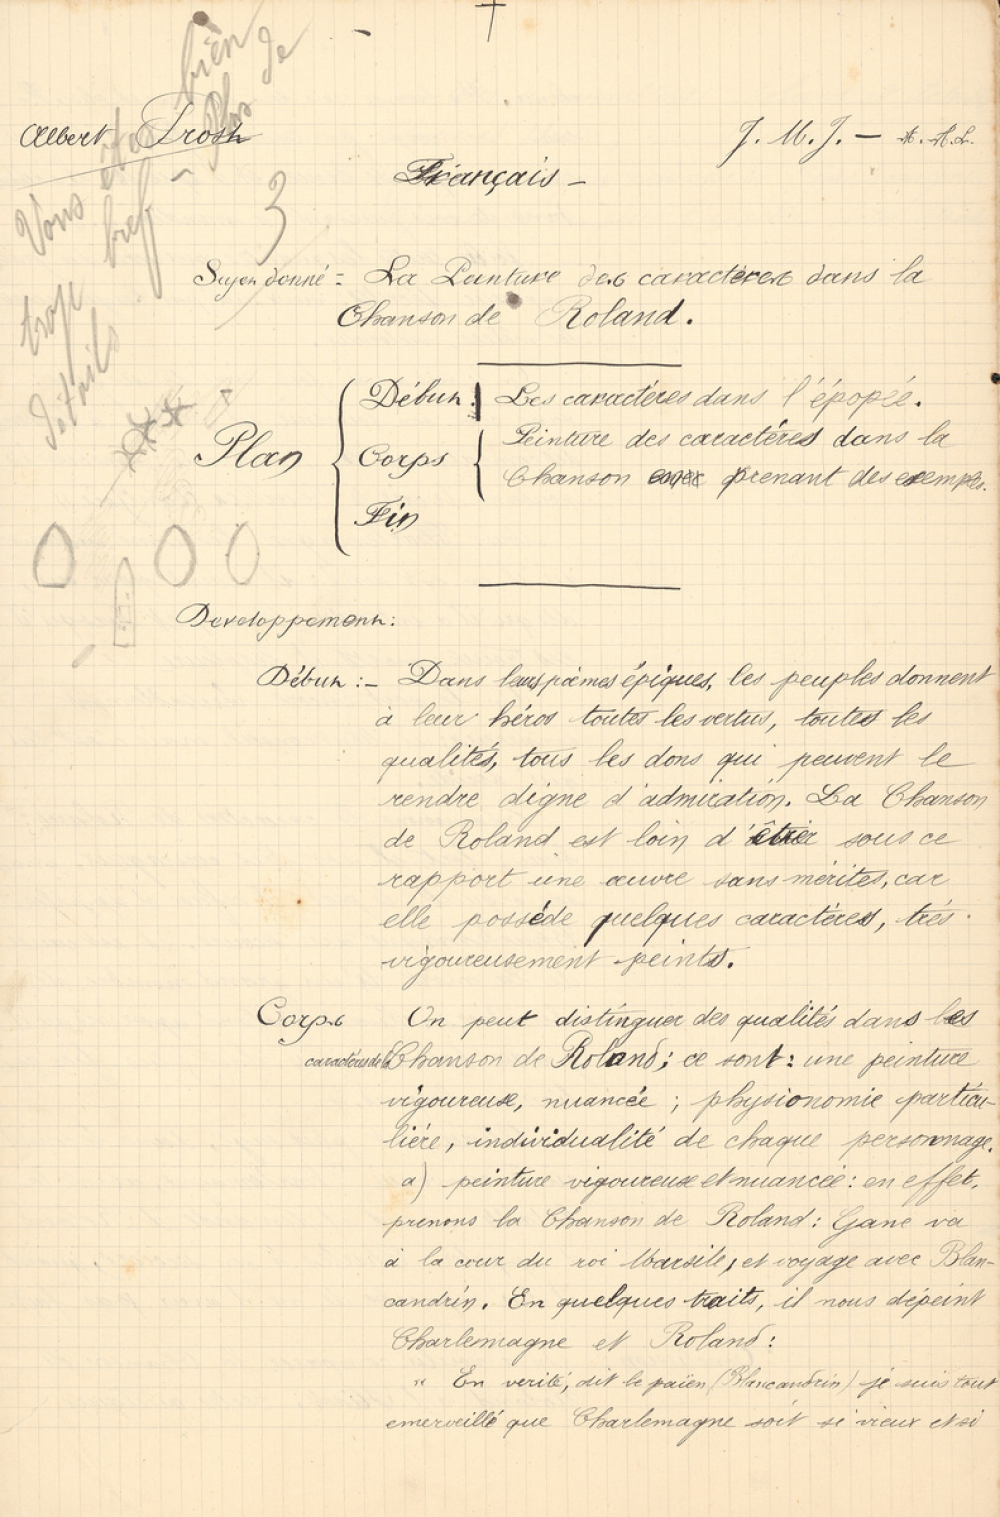 Albert Frosh
J. M. J. — A. M. D. G.
Français —
Vous êtes bien
trop bref - Plus de
détails
3
Sujet donné = La Peinture des caractères dans la
Chanson de Roland.
Plan
Début : Les caractères dans l'épopée.
Corps
Peinture des caractères dans la
Chanson prenant des exemples.
Fin
0 0 0
Developpement:
Début :- Dans leurs poèmes épiques, les peuples donnent
à leur héros toutes les vertus, toutes les
qualités, tous les dons qui peuvent le
rendre digne d'admiration. La Chanson
de Roland est loin d'être sous ce
rapport une œuvre sans mérites, car
elle possède quelques caractères, très
vigoureusement peints.
Corps On peut distinguer des qualités dans les
caractères de la Chanson de Roland; ce sont: une peinture
vigoureuse, nuancée ; physionomie particu-
lière, individualité de chaque personnage.
a) peinture vigoureuse et nuancée: en effet,
prenons la Chanson de Roland: Gane va
à la cour du roi Marsile, et voyage avec Blan-
candrin. En quelques traits, il nous dépeint
Charlemagne et Roland:
" En verité, dit le païen (Blancandrin) je suis tout
emerveillé que Charlemagne soit si vieux et si